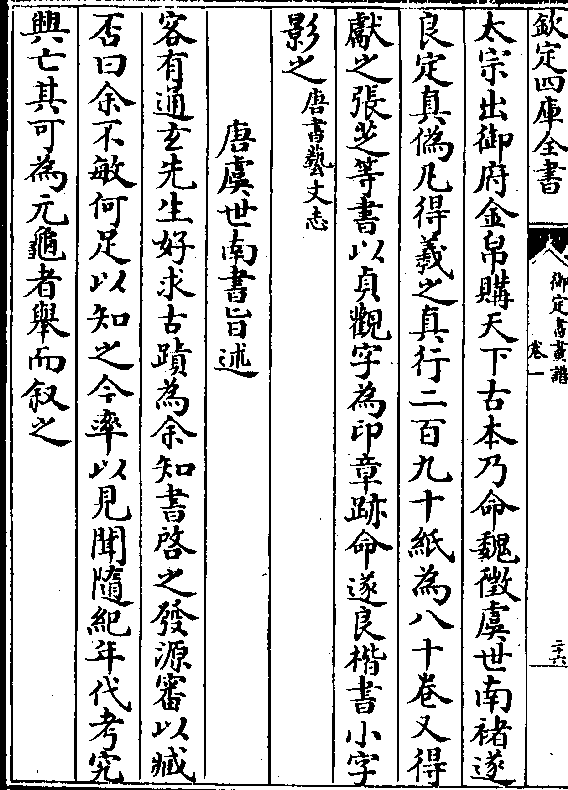 欽定四庫全書
御定書畫譜
卷一
二十六
太宗出御府金帛購天下古本乃命魏徵虞世南禇遂
良定真偽凡得羲之真行二百九十紙為八十卷又得
獻之張芝等書以貞觀字為印章跡命遂良楷書小字
影之唐書藝文志
唐虞世南書旨述
客有通玄先生好求古蹟為余知書啓之發源審以臧
否曰余不敏何足以知之今率以見聞隨紀年代考究
興亡其可為元龜者舉而叙之